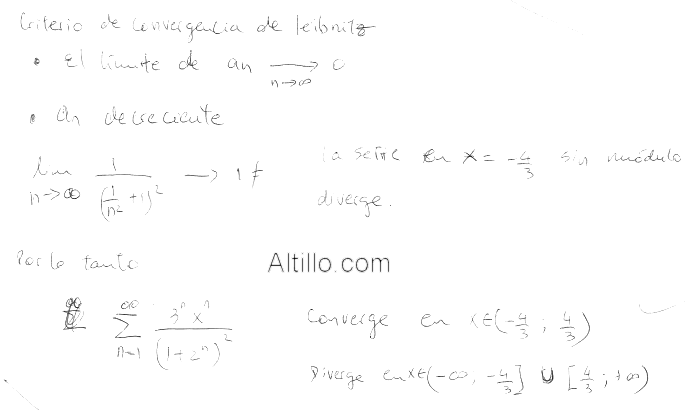 Criterio de convergencia de leibnitz
• El límite de an → 0
n→∞
• an decreciente
lim n→∞ 1 / (1/n² + 1)² → 1 ≠
la serie en x = -4/3 sin módulo
diverge.
Por lo tanto
Altillo.com
∞ Σ n=1 3ⁿ xⁿ / (1+2ⁿ)²
Converge en x∈(-4/3 ; 4/3)
Diverge en x∈(-∞, -4/3] ∪ [4/3 ; +∞)